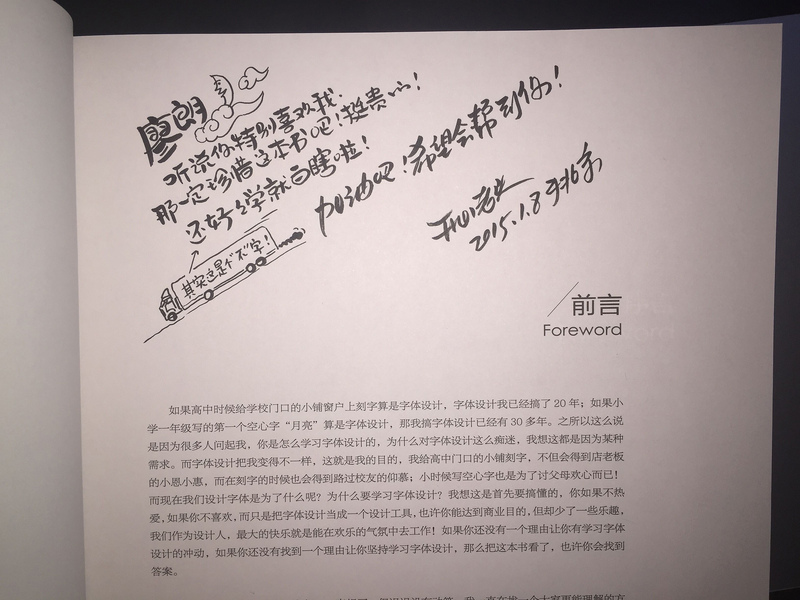 廖朗
听说你特别喜欢我.
那一定珍惜这本书吧!挺贵的!
还好好学就白瞎啦!
其实这是个"不"字!
加油吧!希望会帮到你!
2015.1.8
前言
Foreword
如果高中时候给学校门口的小铺窗户上刻字算是字体设计，字体设计我已经搞了 20 年；如果小
学一年级写的第一个空心字“月亮”算是字体设计，那我搞字体设计已经有 30 多年。之所以这么说
是因为很多人问起我，你是怎么学习字体设计的，为什么对字体设计这么痴迷，我想这都是因为某种
需求。而字体设计把我变得不一样，这就是我的目的，我给高中门口的小铺刻字，不但会得到店老板
的小恩小惠，而在刻字的时候也会得到路过校友的仰慕；小时候写空心字也是为了讨父母欢心而已！
而现在我们设计字体是为了什么呢？为什么要学习字体设计？我想这是首先要搞懂的，你如果不热
爱，如果你不喜欢，而只是把字体设计当成一个设计工具，也许你能达到商业目的，但却少了一些乐趣，
我们作为设计人，最大的快乐就是能在欢乐的气氛中去工作！如果你还没有一个理由让你有学习字体
设计的冲动，如果你还没有找到一个理由让你坚持学习字体设计，那么把这本书看了，也许你会找到
答案。